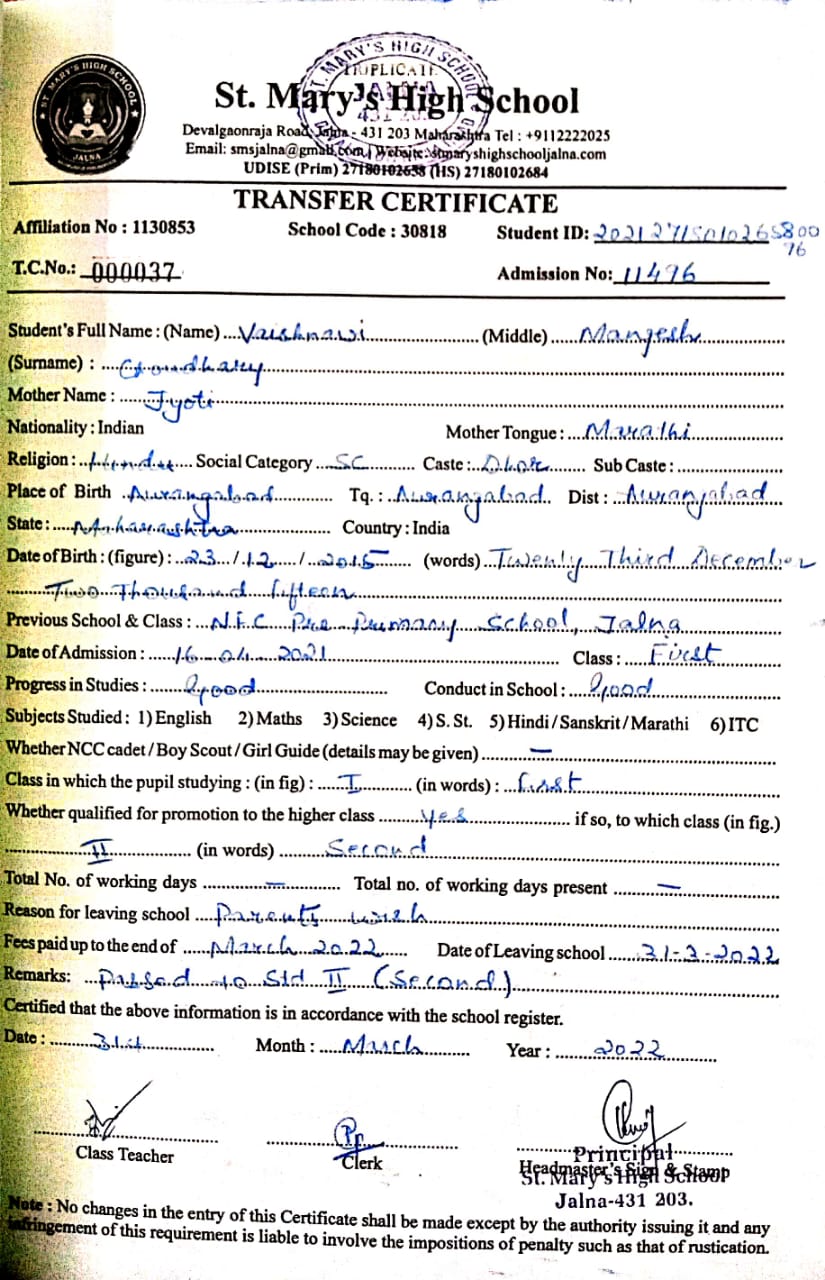 ST. MARY'S HIGH SCHOOL
JALNA
ST. MARY'S HIGH SCHOOL
TRIPLICATE
JALNA
St. Mary's High School
Devalgaonraja Road, Jalna - 431 203 Maharashtra Tel : +9112222025
Email: smsjalna@gmail.com | Website: stmaryshighschooljalna.com
UDISE (Prim) 27180102658 (HS) 27180102684
TRANSFER CERTIFICATE
Affiliation No : 1130853 School Code : 30818 Student ID: 20212715010265800
76
T.C.No.: 000037 Admission No: 11496
Student's Full Name : (Name) Vaishnavi (Middle) Mangesh
(Surname) : Choudhary
Mother Name : Jyoti
Nationality : Indian Mother Tongue : Marathi
Religion : Hindu Social Category SC Caste : Dhor Sub Caste :
Place of Birth Aurangabad Tq. : Aurangabad Dist : Aurangabad
State : Maharashtra Country : India
Date of Birth : (figure) : 23 / 12 / 2015 (words) Twenty Third December
Two Thousand fifteen
Previous School & Class : N.E.C Pre Primary School, Jalna
Date of Admission : 16-04-2021 Class : First
Progress in Studies : Good Conduct in School : Good
Subjects Studied : 1) English 2) Maths 3) Science 4) S. St. 5) Hindi / Sanskrit / Marathi 6) ITC
Whether NCC cadet / Boy Scout / Girl Guide (details may be given) —
Class in which the pupil studying : (in fig) : I (in words) : first
Whether qualified for promotion to the higher class yes if so, to which class (in fig.)
II (in words) Second
Total No. of working days — Total no. of working days present —
Reason for leaving school Parents wish
Fees paid up to the end of March 2022 Date of Leaving school 31-3-2022
Remarks: Passed to Std II (Second)
Certified that the above information is in accordance with the school register.
Date : 31st Month : March Year : 2022
Class Teacher Clerk Principal
Headmaster's Sign & Stamp
St. Mary's High School
Jalna-431 203.
Note : No changes in the entry of this Certificate shall be made except by the authority issuing it and any
infringement of this requirement is liable to involve the impositions of penalty such as that of rustication.